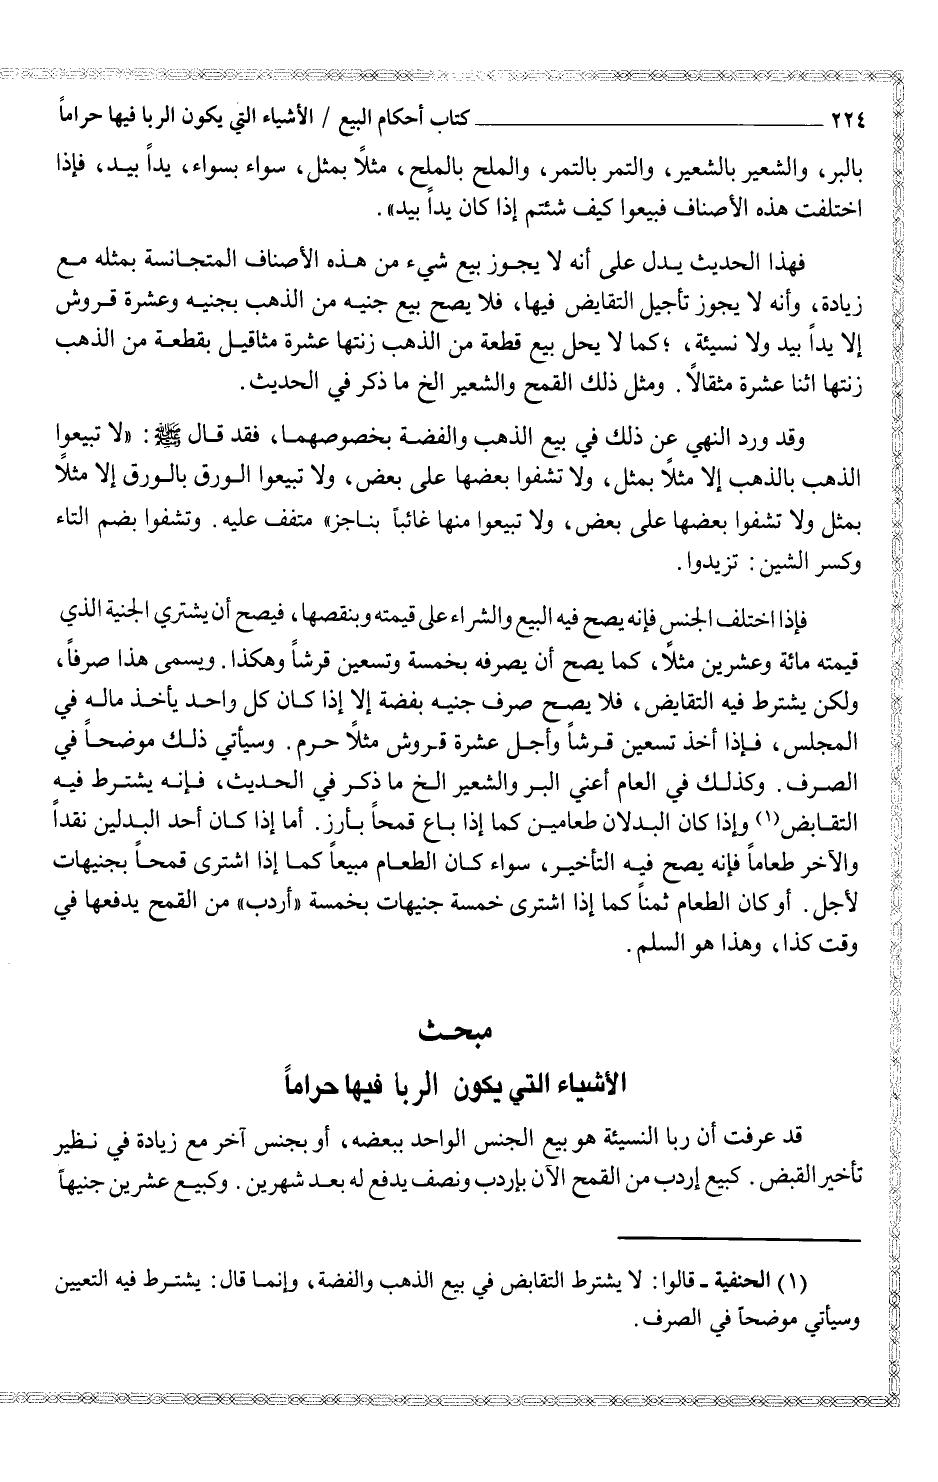 ٢٢٤ ـــــــــــــــــــــ كتاب أحكام البيع / الأشياء التي يكون الربا فيها حراماً
بالبر، والشعير بالشعير، والتمر بالتمر، والملح بالملح، مثلاً بمثل، سواء بسواء، يداً بيد، فإذا
اختلفت هذه الأصناف فبيعوا كيف شئتم إذا كان يداً بيد».
فهذا الحديث يدل على أنه لا يجوز بيع شيء من هذه الأصناف المتجانسة بمثله مع
زيادة، وأنه لا يجوز تأجيل التقابض فيها، فلا يصح بيع جنيه من الذهب بجنيه وعشرة قروش
إلا يداً بيد ولا نسيئة، ؛كما لا يحل بيع قطعة من الذهب زنتها عشرة مثاقيل بقطعة من الذهب
زنتها اثنا عشرة مثقالاً. ومثل ذلك القمح والشعير الخ ما ذكر في الحديث.
وقد ورد النهي عن ذلك في بيع الذهب والفضة بخصوصهما، فقد قال ﷺ: «لا تبيعوا
الذهب بالذهب إلا مثلاً بمثل، ولا تشفوا بعضها على بعض، ولا تبيعوا الورق بالورق إلا مثلاً
بمثل ولا تشفوا بعضها على بعض، ولا تبيعوا منها غائباً بناجز» متفف عليه. وتشفوا بضم التاء
وكسر الشين: تزيدوا.
فإذا اختلف الجنس فإنه يصح فيه البيع والشراء على قيمته وبنقصها، فيصح أن يشتري الجنية الذي
قيمته مائة وعشرين مثلاً، كما يصح أن يصرفه بخمسة وتسعين قرشاً وهكذا. ويسمى هذا صرفاً،
ولكن يشترط فيه التقابض، فلا يصح صرف جنيه بفضة إلا إذا كان كل واحد يأخذ ماله في
المجلس، فإذا أخذ تسعين قرشاً وأجل عشرة قروش مثلاً حرم. وسيأتي ذلك موضحاً في
الصرف. وكذلك في العام أعني البر والشعير الخ ما ذكر في الحديث، فإنه يشترط فيه
التقابض(١) وإذا كان البدلان طعامين كما إذا باع قمحاً بأرز. أما إذا كان أحد البدلين نقداً
والآخر طعاماً فإنه يصح فيه التأخير، سواء كان الطعام مبيعاً كما إذا اشترى قمحاً بجنيهات
لأجل. أو كان الطعام ثمناً كما إذا اشترى خمسة جنيهات بخمسة «أردب» من القمح يدفعها في
وقت كذا، وهذا هو السلم.
مبحث
الأشياء التي يكون الربا فيها حراماً
قد عرفت أن ربا النسيئة هو بيع الجنس الواحد ببعضه، أو بجنس آخر مع زيادة في نظير
تأخير القبض. كبيع إردب من القمح الآن بإردب ونصف يدفع له بعد شهرين. وكبيع عشرين جنيهاً
(١) الحنفية ـ قالوا: لا يشترط التقابض في بيع الذهب والفضة، وإنما قال: يشترط فيه التعيين
وسيأتي موضحاً في الصرف.